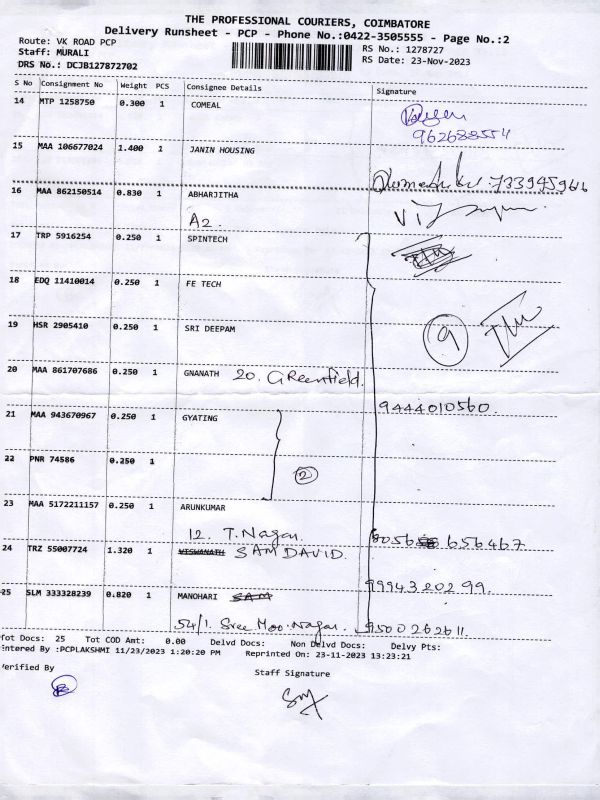 THE PROFESSIONAL COURIERS, COIMBATORE
Delivery Runsheet - PCP - Phone No.:0422-3505555 - Page No.:2
Route: VK ROAD PCP RS No.: 1278727
Staff: MURALI RS Date: 23-Nov-2023
DRS No.: DCJB127872702
S No Consignment No Weight PCS Consignee Details Signature
14 MTP 1258750 0.300 1 COMEAL
962688554
15 MAA 106677024 1.400 1 JANIN HOUSING
733945966
16 MAA 862150514 0.830 1 ABHARJITHA
A2.
17 TRP 5916254 0.250 1 SPINTECH
18 EDQ 11410014 0.250 1 FE TECH
19 HSR 2905410 0.250 1 SRI DEEPAM
9
20 MAA 861707686 0.250 1 GNANATH 20. GReenfield.
9444010560.
21 MAA 943670967 0.250 1 GYATING
22 PNR 74586 0.250 1
2
23 MAA 5172211157 0.250 1 ARUNKUMAR
12. T. Nagar. 656467
24 TRZ 55007724 1.320 1 VISWANATH SAM DAVID.
9994320299.
25 SLM 333328239 0.820 1 MANOHARI SAM
54/1. Sree Moo. Nagar. 9500262611.
Tot Docs: 25 Tot COD Amt: 0.00 Delvd Docs: Non Delvd Docs: Delvy Pts:
Entered By :PCPLAKSHMI 11/23/2023 1:20:20 PM Reprinted On: 23-11-2023 13:23:21
Verified By Staff Signature